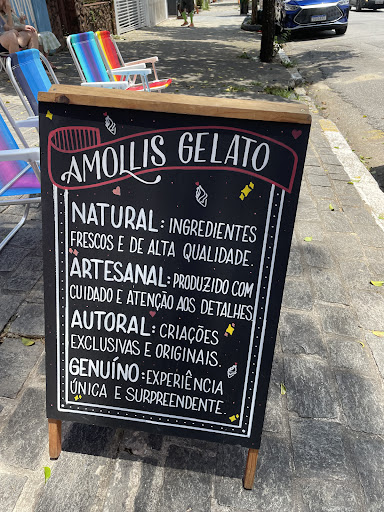 AMOLLIS GELATO
NATURAL: INGREDIENTES
FRESCOS E DE ALTA QUALIDADE.
ARTESANAL: PRODUZIDO COM
CUIDADO E ATENÇÃO AOS DETALHES
AUTORAL: CRIAÇÕES
EXCLUSIVAS E ORIGINAIS.
GENUÍNO: EXPERIÊNCIA
ÚNICA E SURPREENDENTE.